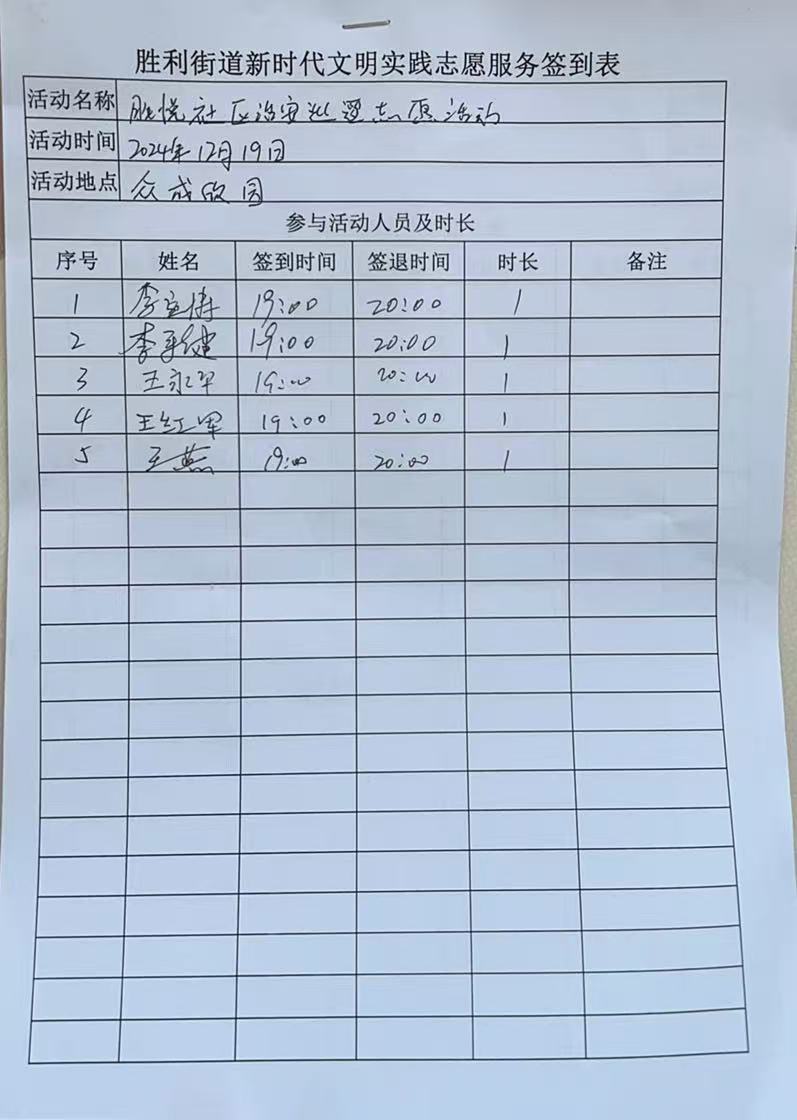 胜利街道新时代文明实践志愿服务签到表
活动名称 胜悦社区治安巡逻志愿活动
活动时间 2024年12月19日
活动地点 众成欣园
参与活动人员及时长
序号 姓名 签到时间 签退时间 时长 备注
1 李 19:00 20:00 1
2 李 19:00 20:00 1
3 王永军 19:00 20:00 1
4 王红军 19:00 20:00 1
5 王燕 19:00 20:00 1